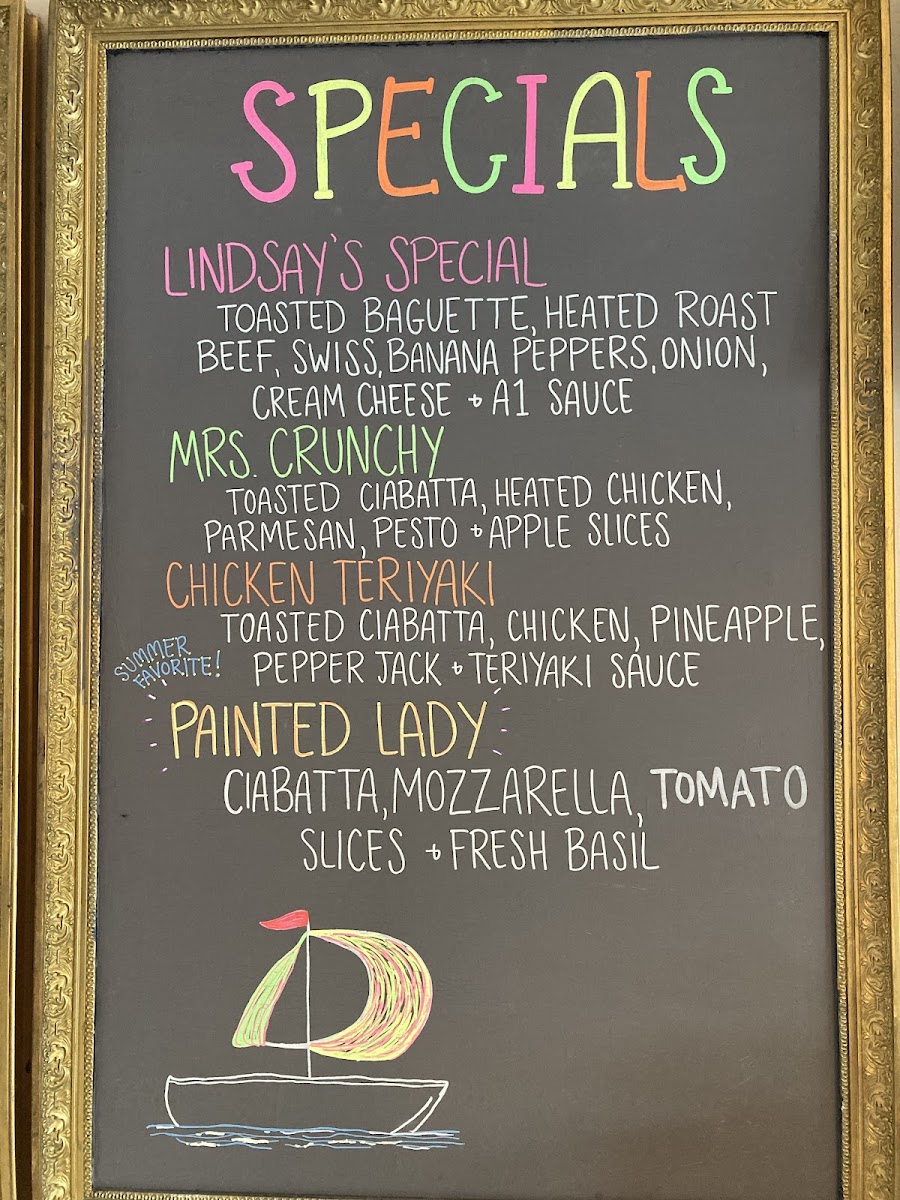 SPECIALS
LINDSAY'S SPECIAL
TOASTED BAGUETTE, HEATED ROAST
BEEF, SWISS, BANANA PEPPERS, ONION,
CREAM CHEESE + A1 SAUCE
MRS. CRUNCHY
TOASTED CIABATTA, HEATED CHICKEN,
PARMESAN, PESTO + APPLE SLICES
CHICKEN TERIYAKI
TOASTED CIABATTA, CHICKEN, PINEAPPLE,
PEPPER JACK + TERIYAKI SAUCE
SUMMER
FAVORITE!
PAINTED LADY
CIABATTA, MOZZARELLA, TOMATO
SLICES + FRESH BASIL